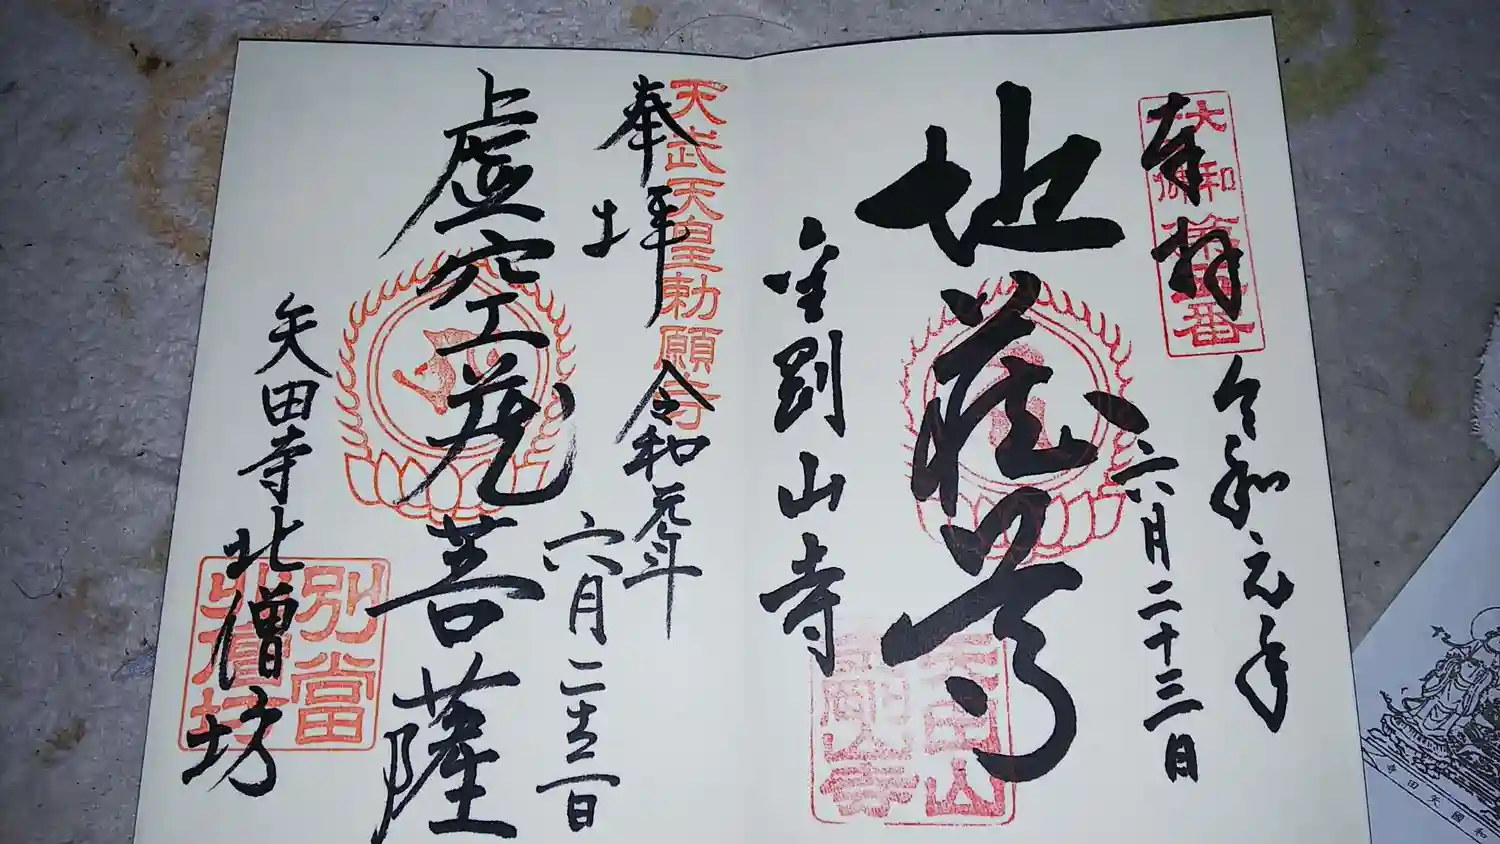 奉拝
令和元年
六月二十三日
地蔵尊
金剛山寺
矢田山
金剛山寺
天武天皇勅願寺
奉拝
令和元年
六月二十三日
虚空蔵菩薩
矢田寺北僧坊
別當
北僧坊